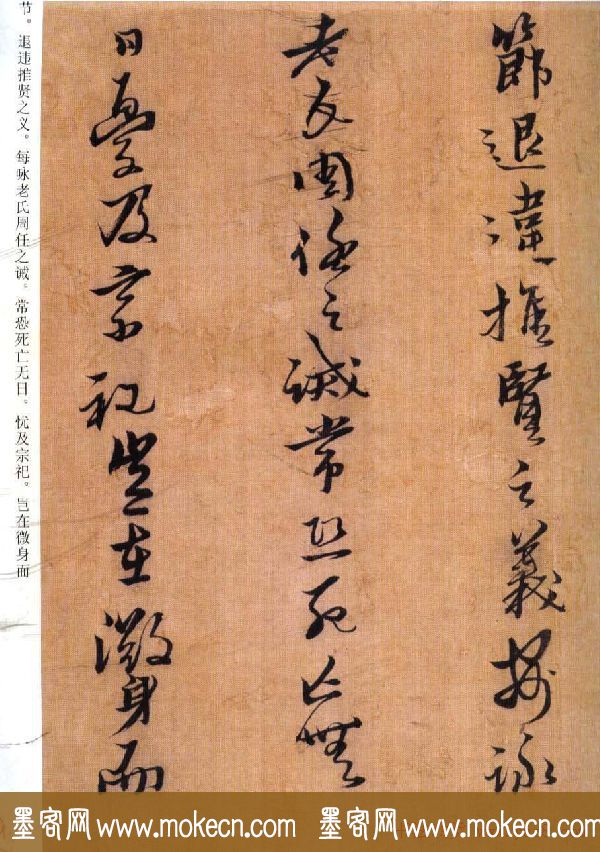 節退違推賢之義每詠
老氏周任之誡常恐死亡無
日憂及宗祀豈在微身而
节。退违推贤之义。每咏老氏周任之诫。常恐死亡无日。忧及宗祀。岂在微身而
墨客网 www.mokecn.com 墨客网 www.mokecn.com